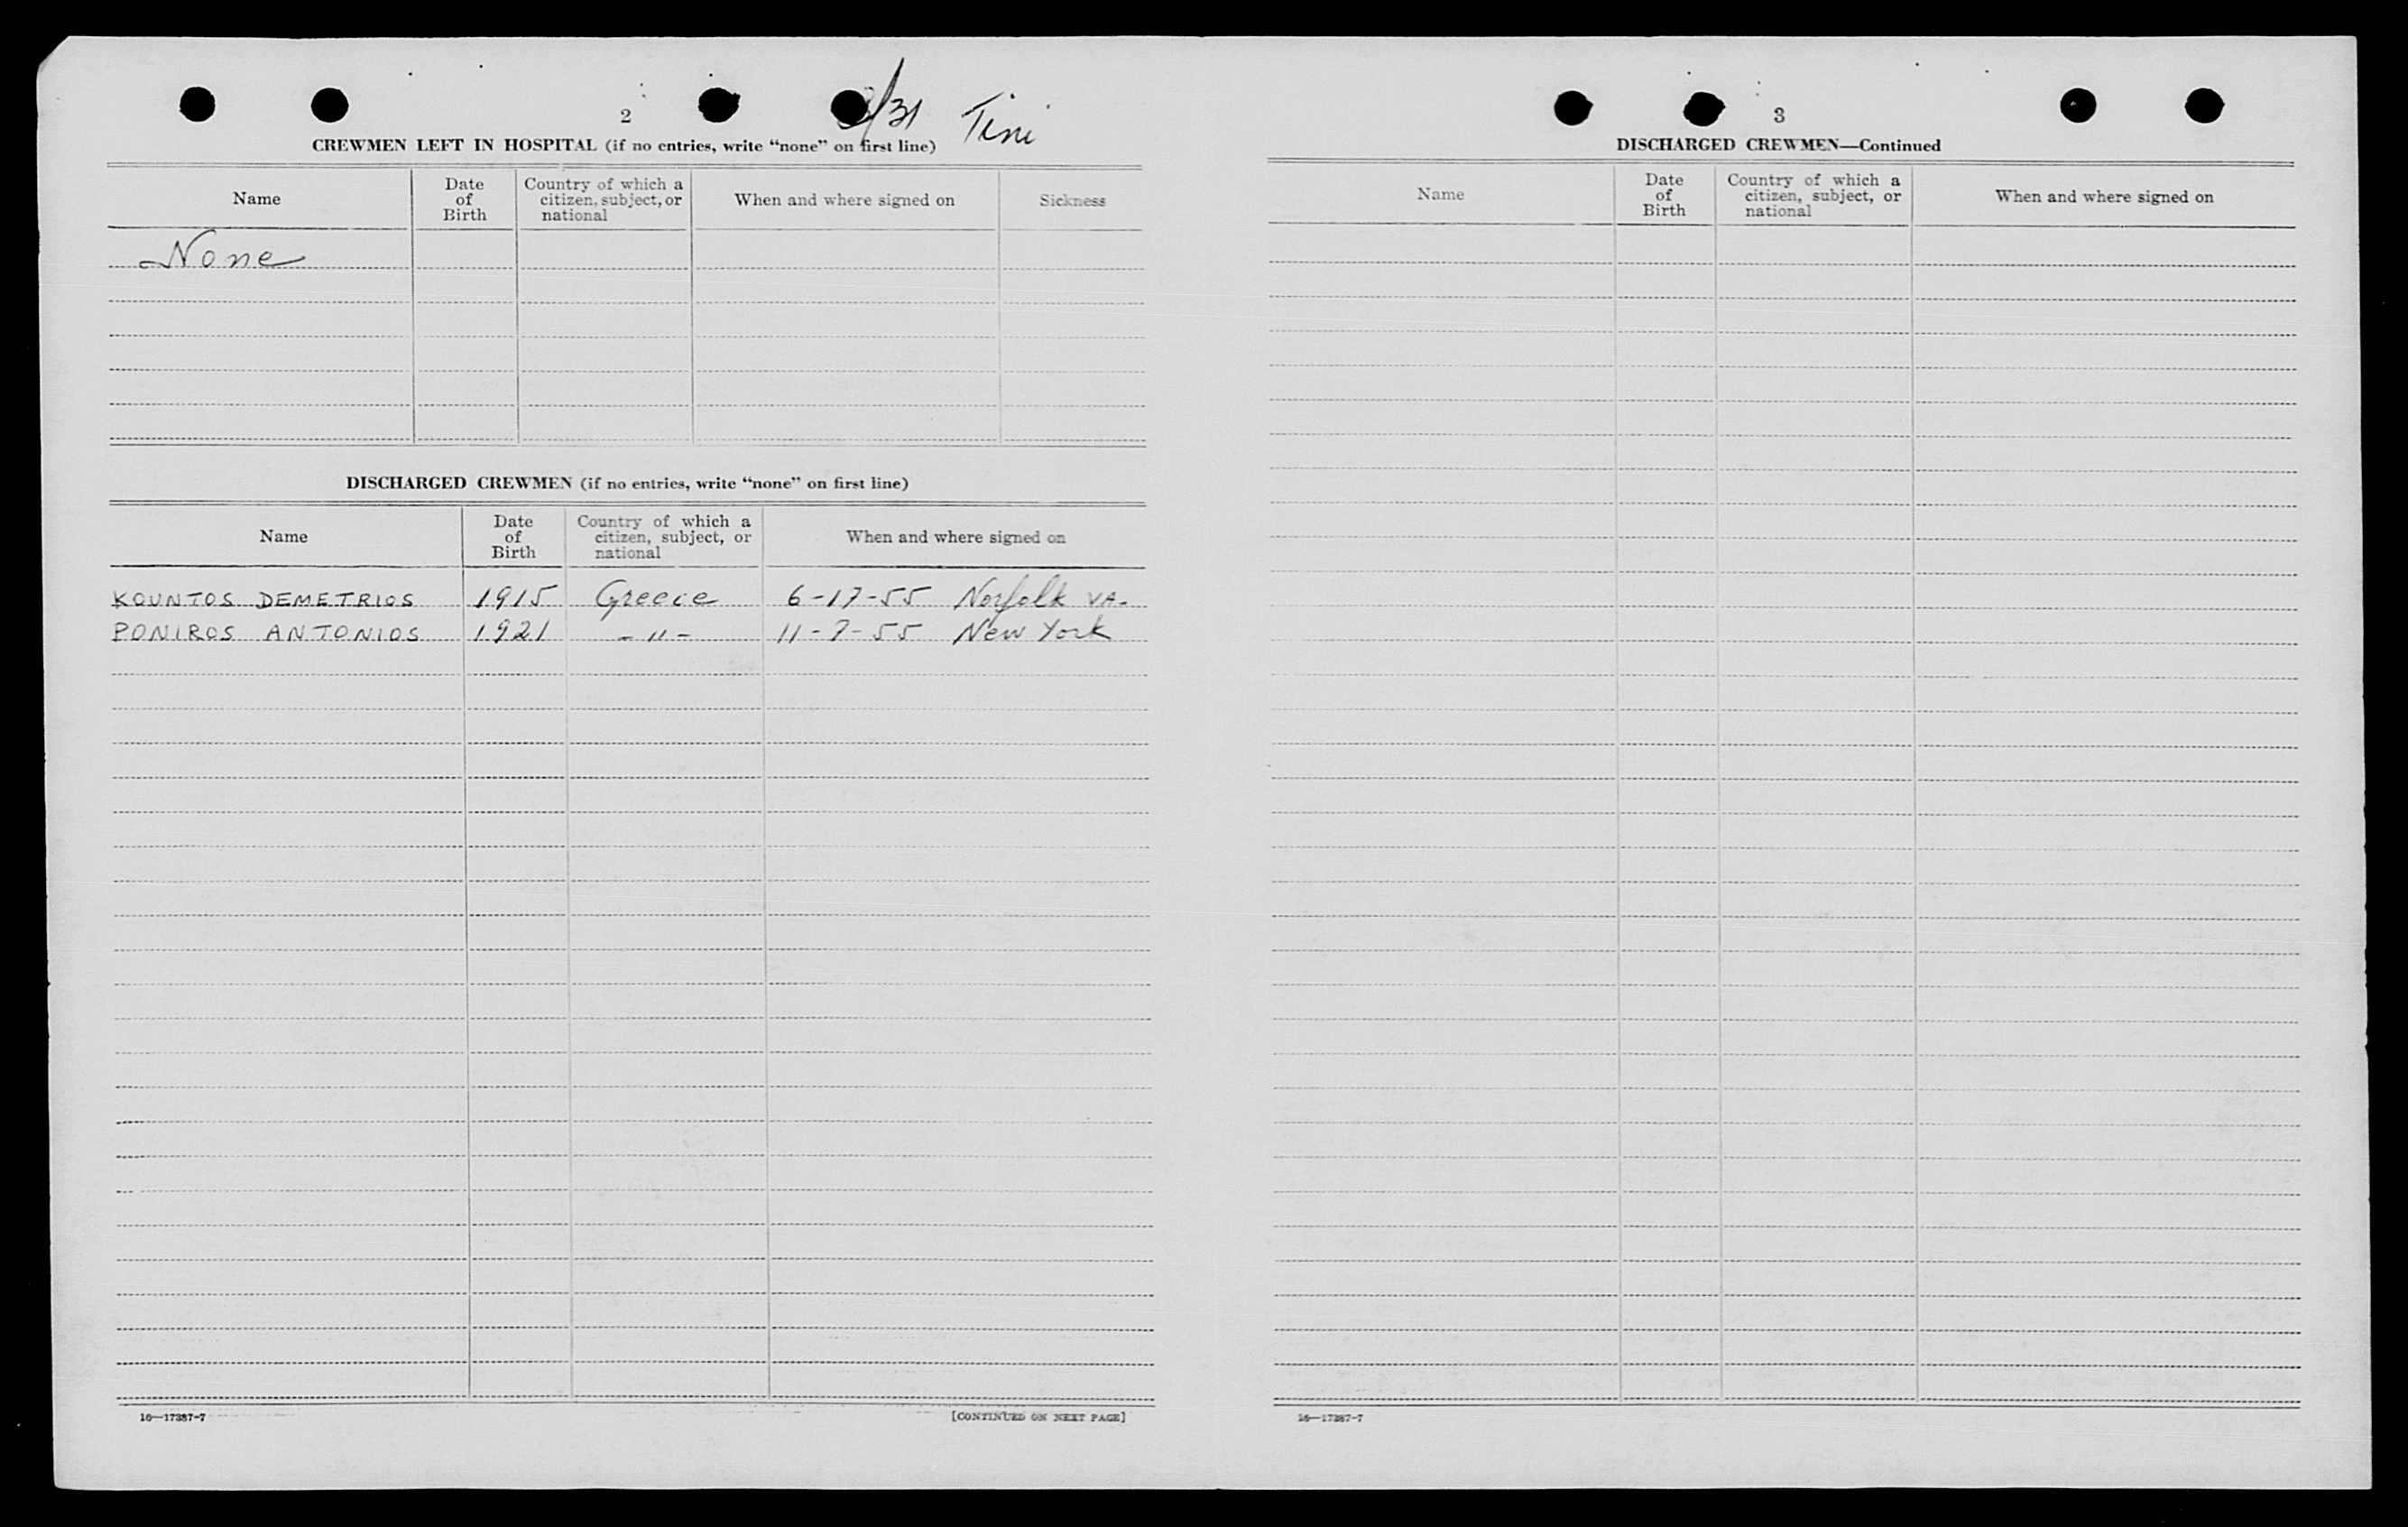 2
/31 Tini
CREWMEN LEFT IN HOSPITAL (if no entries, write “none” on first line)
Name
Date of Birth
Country of which a citizen, subject, or national
When and where signed on
Sickness
None
DISCHARGED CREWMEN (if no entries, write “none” on first line)
Name
Date of Birth
Country of which a citizen, subject, or national
When and where signed on
KOUNTOS DEMETRIOS 1915 Greece 6-17-55 Norfolk VA.
PONIROS ANTONIOS 1921 -"- 11-7-55 New York
16—17387-7
[CONTINUED ON NEXT PAGE]
3
DISCHARGED CREWMEN—Continued
Name
Date of Birth
Country of which a citizen, subject, or national
When and where signed on
16—17387-7